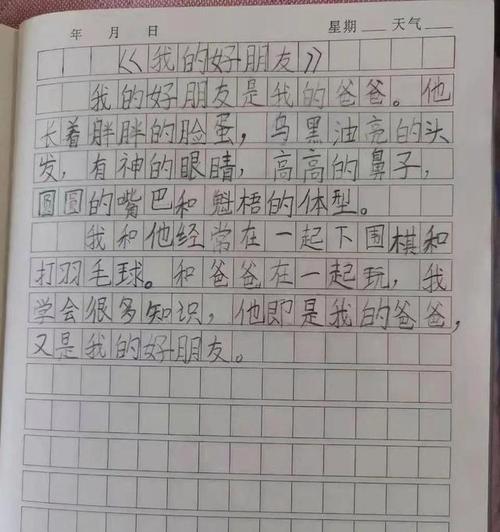 年 月 日 星期 天气
《我的好朋友》
我的好朋友是我的爸爸。他
长着胖胖的脸蛋，乌黑油亮的头
发，有神的眼睛，高高的鼻子，
圆圆的嘴巴和魁梧的体型。
我和他经常在一起下围棋和
打羽毛球。和爸爸在一起玩，我
学会很多知识，他即是我的爸爸，
又是我的好朋友。